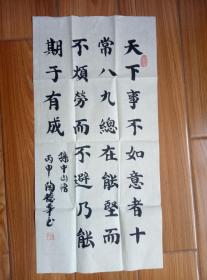 天下事不如意者十
常八九總在能堅而
不煩勞而不避乃能
期于有成
孫中山語
丙申